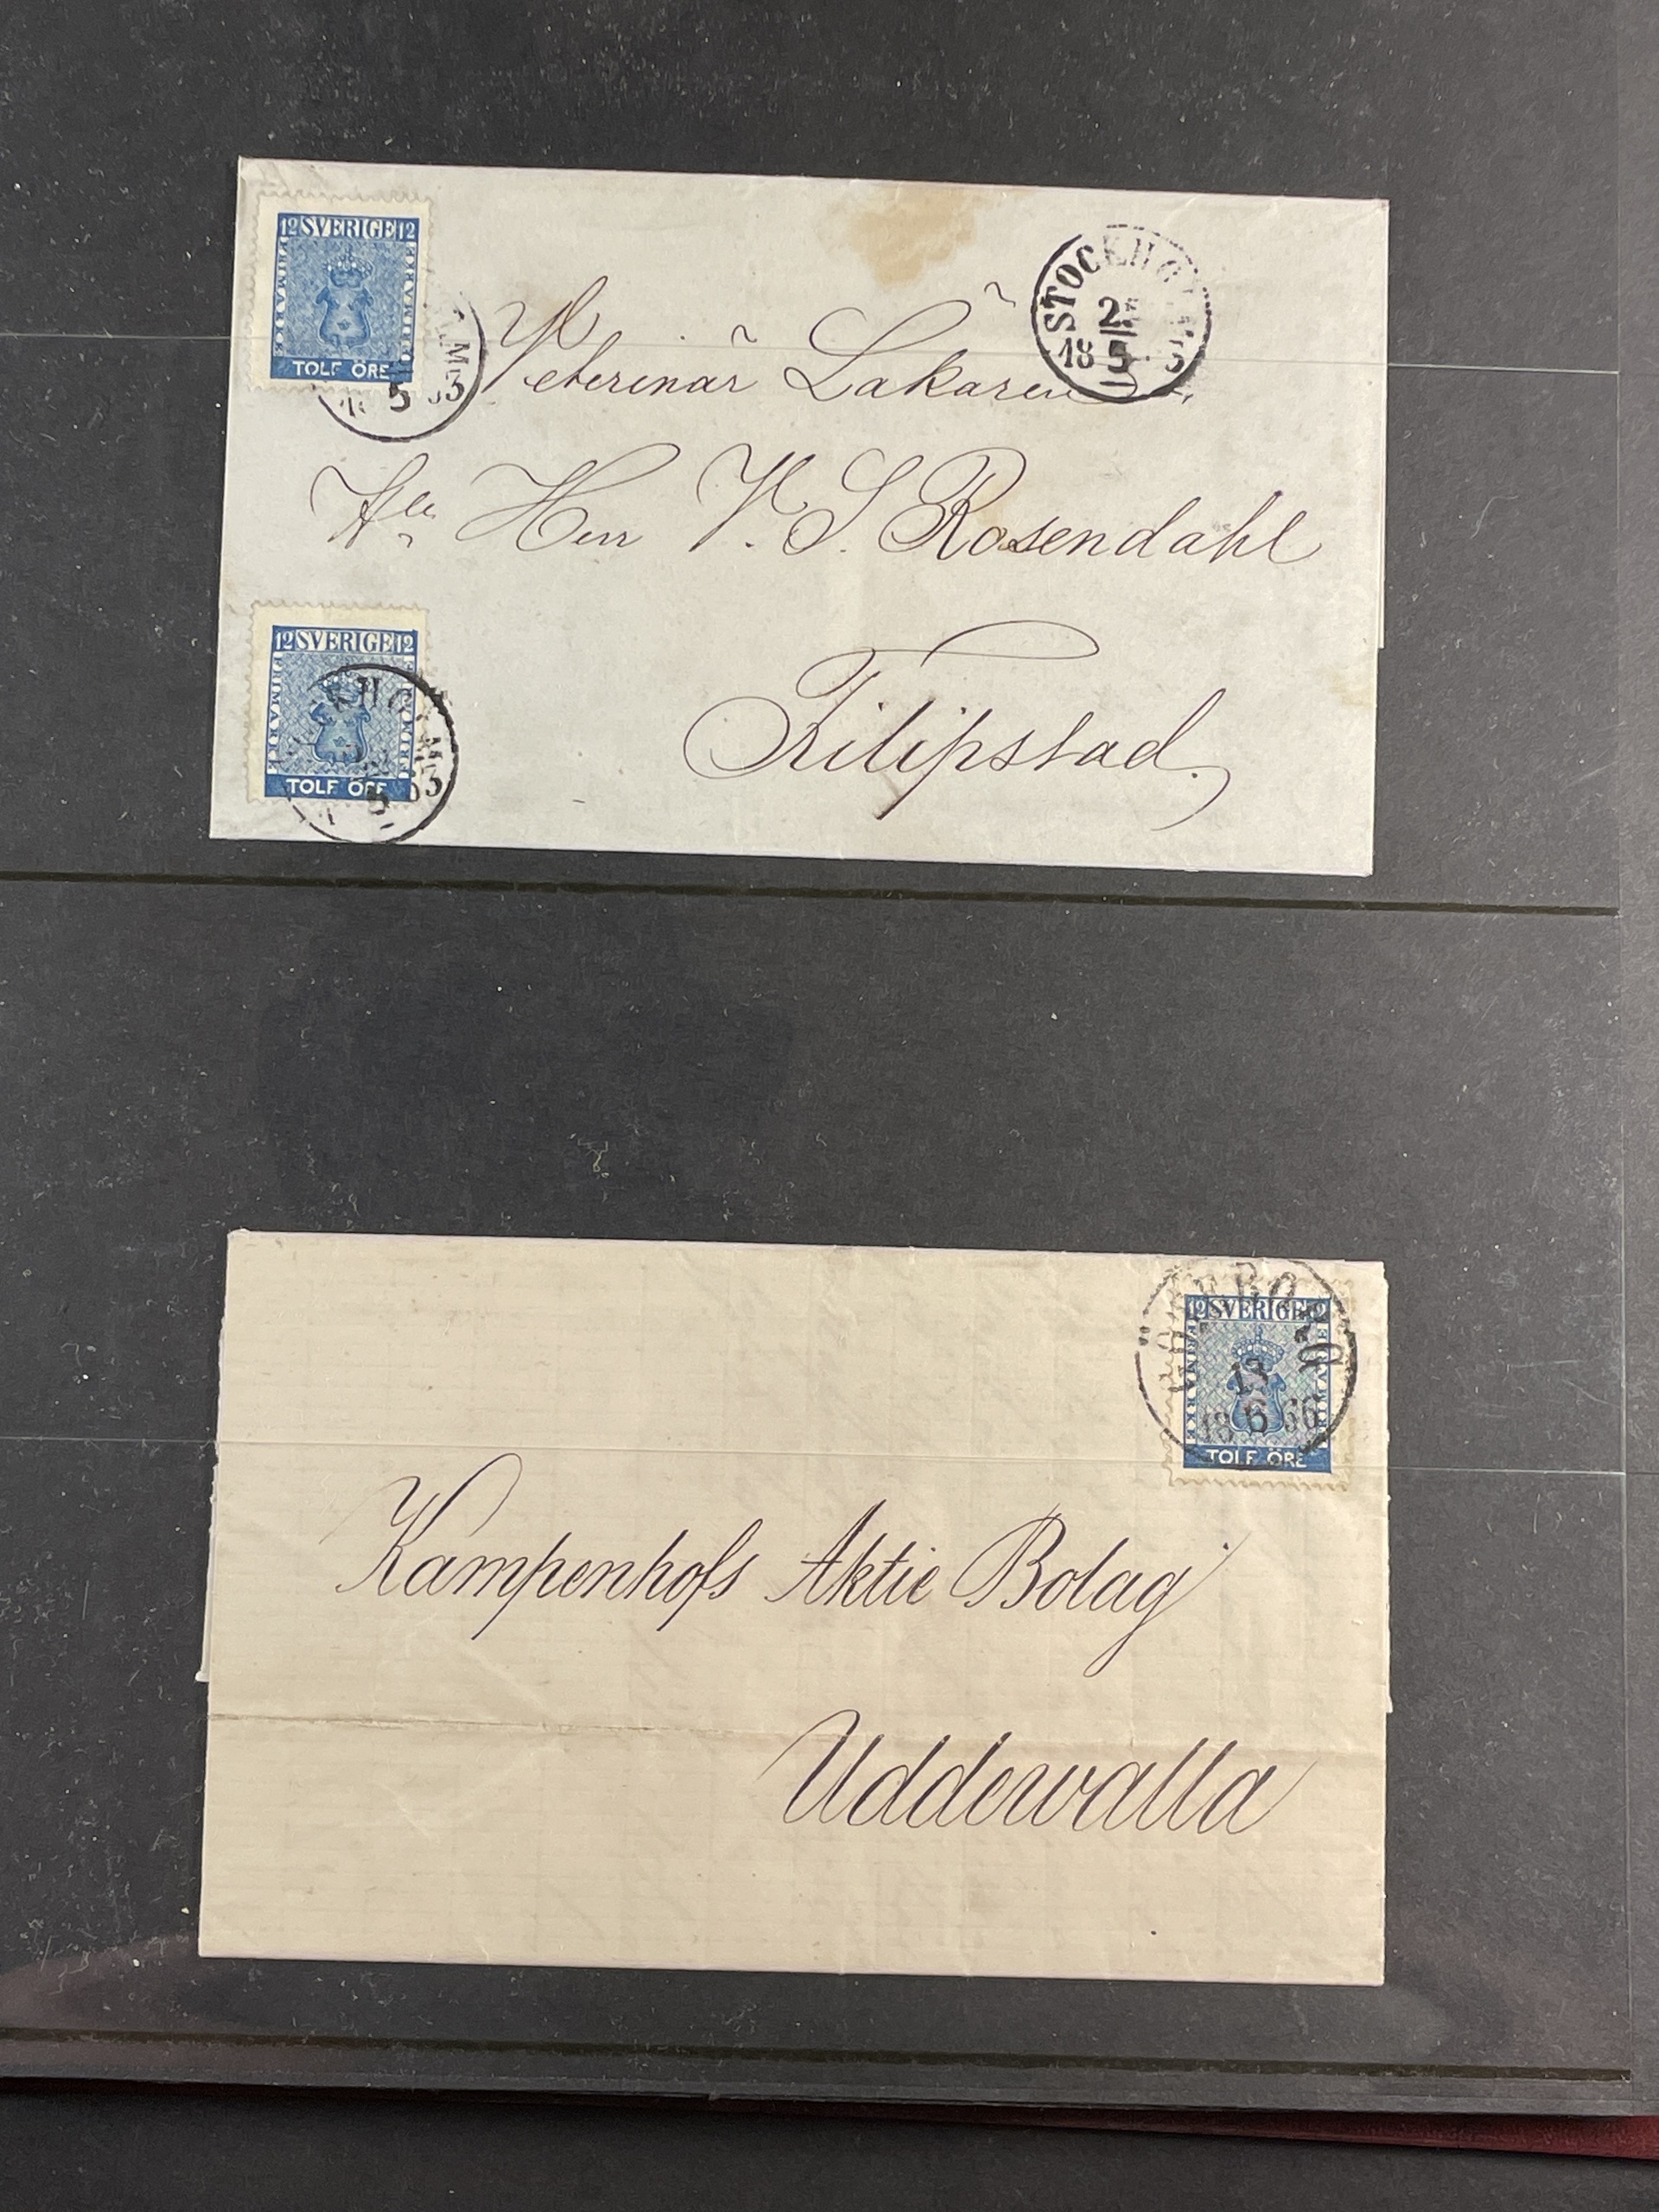 12 SVERIGE 12
FRIMÄRKE
FRIMÄRKE
TOLF ÖRE
5 63
STOCKHOLM
18 5
Veterinär Läkaren
Herr V. S. Rosendahl
Filipstad.
12 SVERIGE 12
FRIMÄRKE
FRIMÄRKE
TOLF ÖRE
5 63
GÖTEBORG
13
18 6 66
12 SVERIGE 12
FRIMÄRKE
FRIMÄRKE
TOLF ÖRE
Kampenhofs Aktie Bolag
Uddewalla